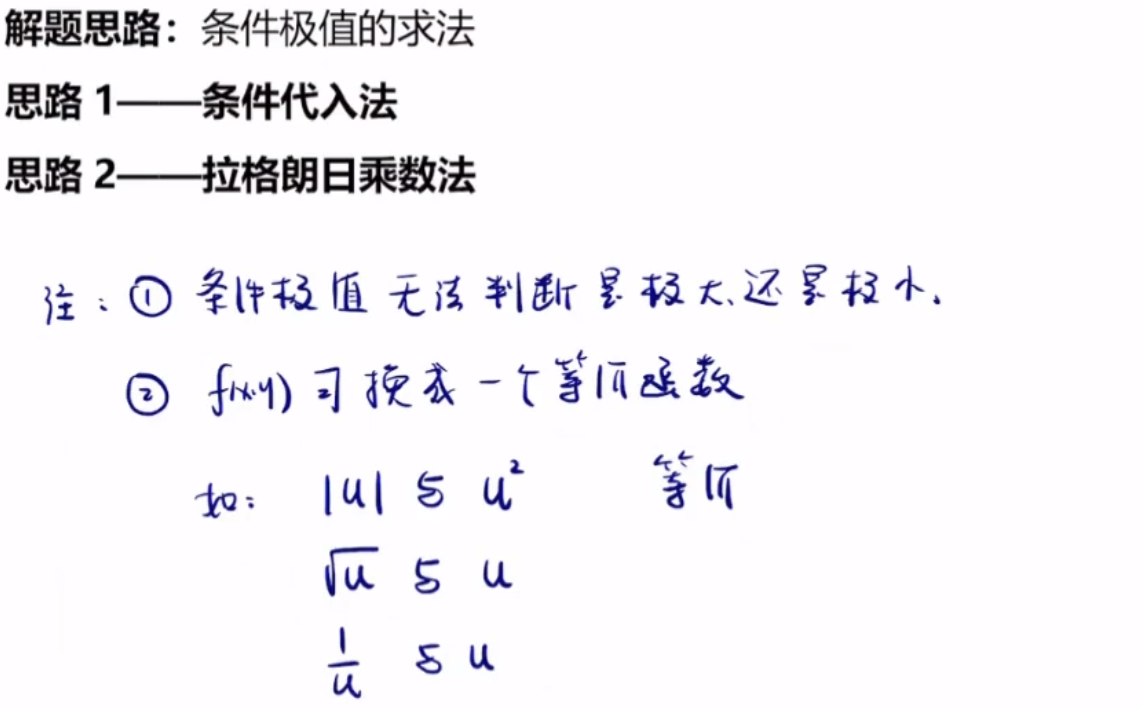 解题思路：条件极值的求法
思路 1——条件代入法
思路 2——拉格朗日乘数法
注：① 条件极值无法判断是极大、还是极小.
② f(x,y) 可换成一个等价函数
如： |u| 与 u² 等价
√u 与 u
1/u 与 u